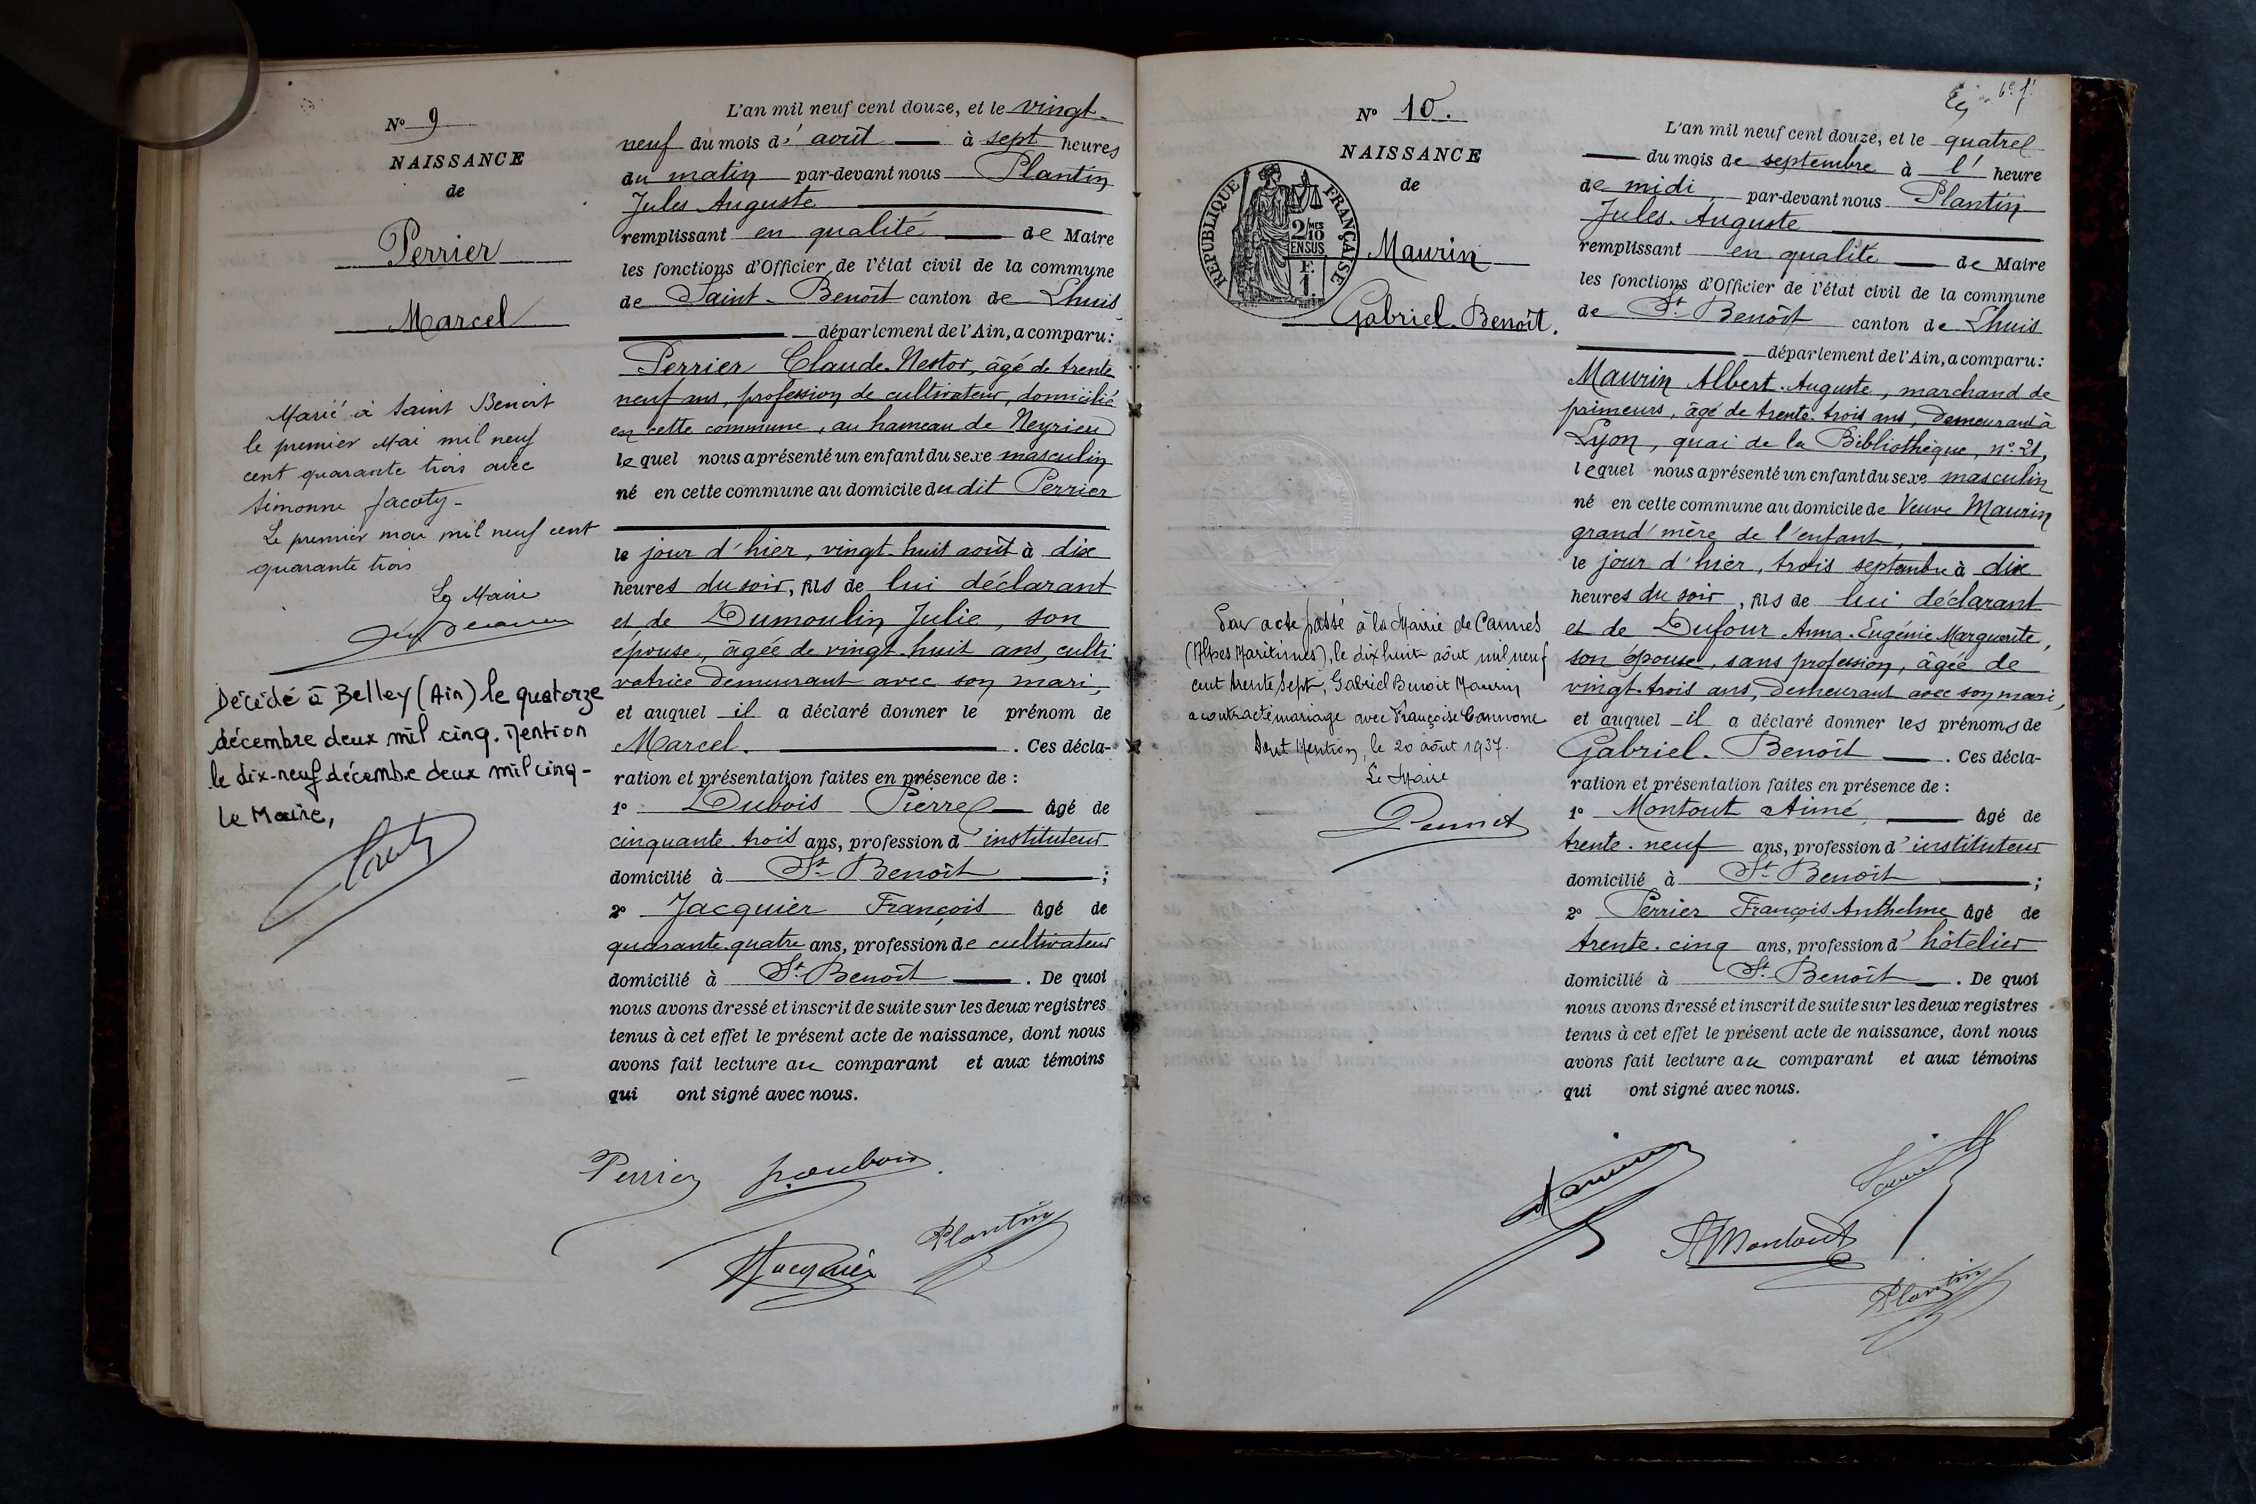 Nº 9
NAISSANCE
de
Perrier
Marcel
Marié à Saint Benoit
le premier Mai mil neuf
cent quarante trois avec
Simonne Jacoty-
Le premier mai mil neuf cent
quarante trois
Le Maire
Décédé à Belley (Ain) le quatorze
décembre deux mil cinq. Mention
le dix-neuf décembre deux mil cinq-
Le Maire,
L'an mil neuf cent douze, et le vingt-
neuf du mois d'août à sept heures
du matin par-devant nous Plantin
Jules Auguste
remplissant en qualité de Maire
les fonctions d'Officier de l'état civil de la commune
de Saint-Benoît canton de Lhuis
département de l'Ain, a comparu:
Perrier Claude-Nestor, âgé de trente
neuf ans, profession de cultivateur, domicilié
en cette commune, au hameau de Neyrieu
lequel nous a présenté un enfant du sexe masculin
né en cette commune au domicile du dit Perrier
le jour d'hier, vingt-huit août à dix
heures du soir, fils de lui déclarant
et de Dumoulin Julie, son
épouse, âgée de vingt-huit ans, culti
vatrice demeurant avec son mari,
et auquel il a déclaré donner le prénom de
Marcel. . Ces décla-
ration et présentation faites en présence de :
1º Dubois Pierre âgé de
cinquante-trois ans, profession d'instituteur
domicilié à St-Benoît ;
2º Jacquier François âgé de
quarante-quatre ans, profession de cultivateur
domicilié à St-Benoît . De quoi
nous avons dressé et inscrit de suite sur les deux registres
tenus à cet effet le présent acte de naissance, dont nous
avons fait lecture au comparant et aux témoins
qui ont signé avec nous.
Perrier P. Dubois
Jacquier Plantin
Nº 10.
NAISSANCE
de
RÉPUBLIQUE FRANÇAISE
2/10MES
EN SUS
F.
1.
Maurin
Gabriel-Benoît.
Par acte passé à la Mairie de Cannes
(Alpes Maritimes), le dix huit août mil neuf
cent trente sept, Gabriel Benoit Maurin
a contracté mariage avec Françoise Cannone
Dont Mention, le 20 août 1937.
Le Maire
L'an mil neuf cent douze, et le quatre
du mois de septembre à l' heure
de midi par-devant nous Plantin
Jules-Auguste
remplissant en qualité de Maire
les fonctions d'Officier de l'état civil de la commune
de St-Benoît canton de Lhuis
département de l'Ain, a comparu:
Maurin Albert-Auguste, marchand de
primeurs, âgé de trente-trois ans, demeurant à
Lyon, quai de la Bibliothèque, nº 21,
lequel nous a présenté un enfant du sexe masculin
né en cette commune au domicile de Veuve Maurin
grand'mère de l'enfant,
le jour d'hier, trois septembre à dix
heures du soir, fils de lui déclarant
et de Dufour Anna-Eugénie Marguerite,
son épouse, sans profession, âgée de
vingt-trois ans, demeurant avec son mari,
et auquel il a déclaré donner les prénoms de
Gabriel-Benoît . Ces décla-
ration et présentation faites en présence de :
1º Montout Aimé âgé de
trente-neuf ans, profession d'instituteur
domicilié à St-Benoît ;
2º Perrier François Anthelme âgé de
trente-cinq ans, profession d'hôtelier
domicilié à St-Benoît . De quoi
nous avons dressé et inscrit de suite sur les deux registres
tenus à cet effet le présent acte de naissance, dont nous
avons fait lecture au comparant et aux témoins
qui ont signé avec nous.
Maurin
A Montout
Plantin